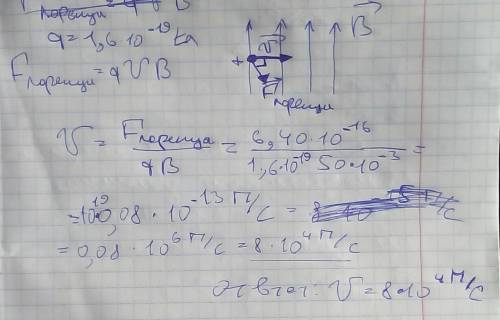 q = 1,6·10⁻¹⁹ Кл
B⃗
v⃗
+
Fлоренца = q V B
Fлоренца
V = Fлоренца / qB = 6,40·10⁻¹⁶ / 1,6·10⁻¹⁹ 50·10⁻³ =
0,08 · 10⁻¹³ м/с =
= 0,08 · 10⁶ м/с = 8·10⁴ м/с
Ответ: V = 8·10⁴ м/с